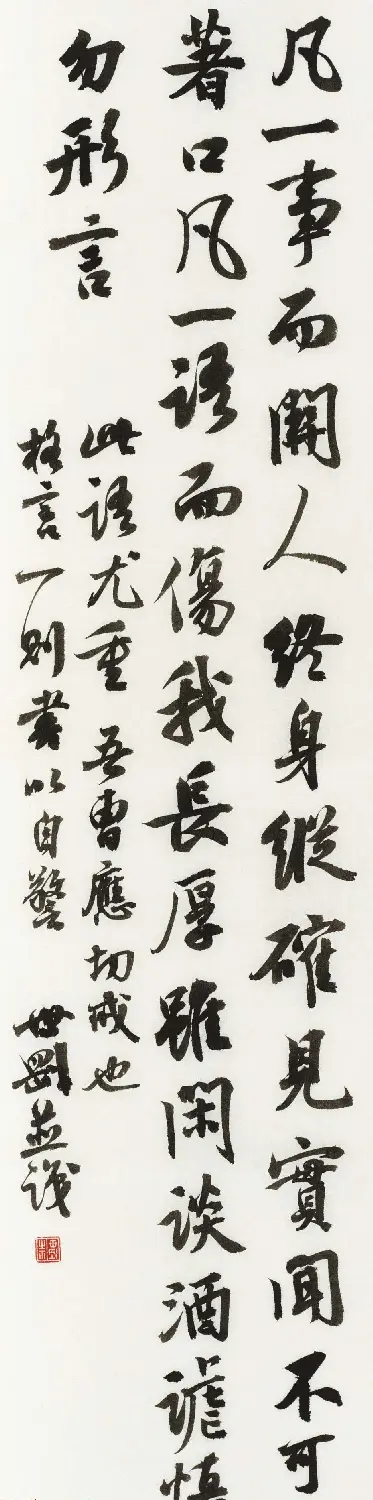 凡一事而關人終身縱確見實聞不可
著口凡一語而傷我長厚雖閑談酒謔慎
勿形言
此語尤重吾曹應切戒也
格言一則書以自警 世剛並識